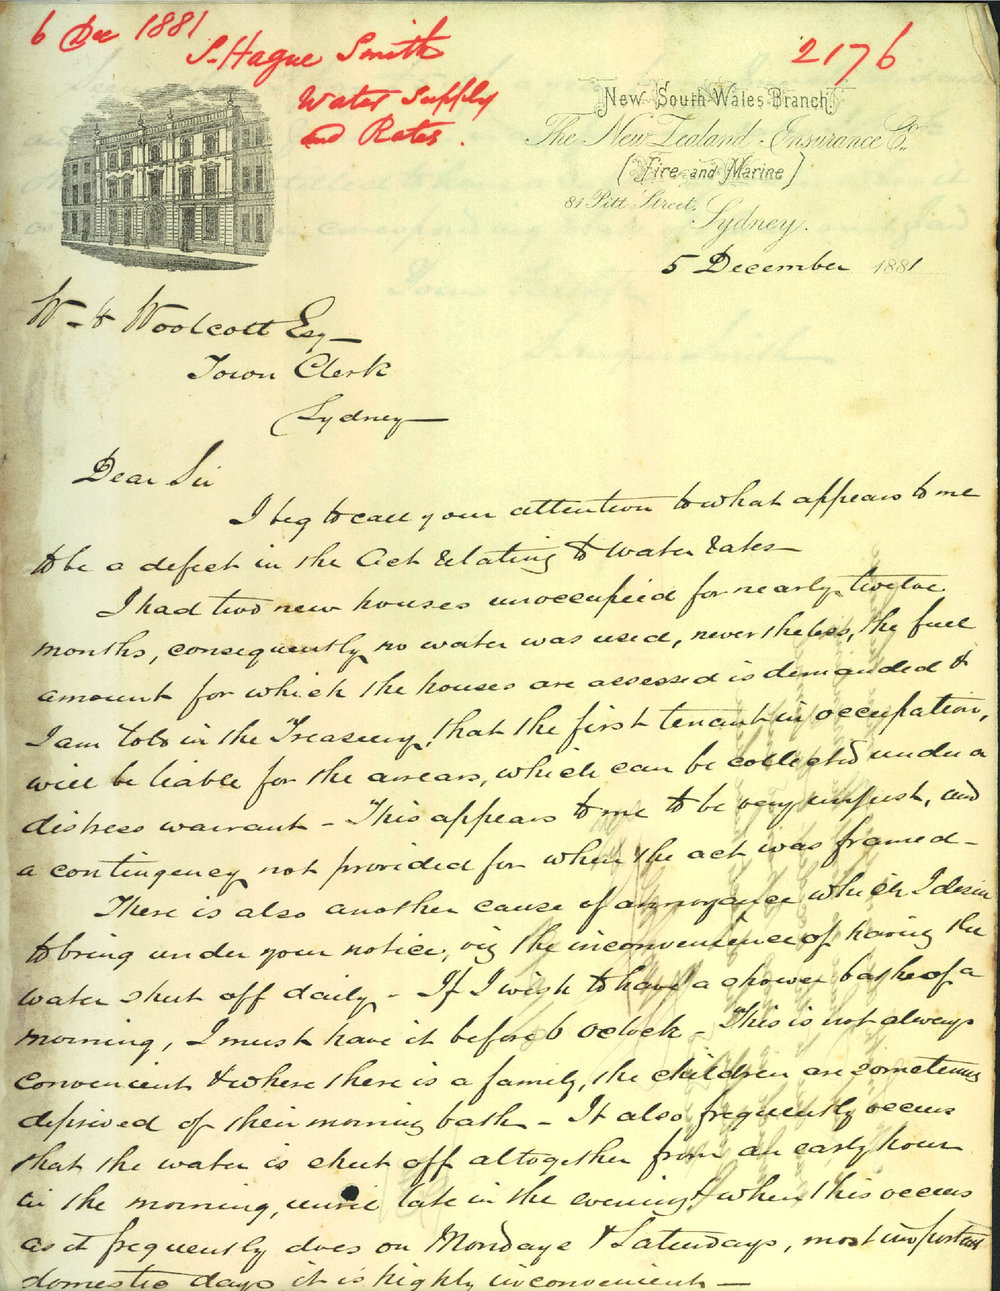 6 Dec 1881
S. Hague Smith
Water Supply
and Rates.
2176
New South Wales Branch.
The New Zealand Insurance Co.
(Fire and Marine)
81 Pitt Street,
Sydney.
5 December 1881
W. H Woolcott Esq
Town Clerk
Sydney
Dear Sir
I beg to call your attention to what appears to me
to be a defect in the Act relating to water rates—
I had two new houses unoccupied for nearly twelve
months, consequently no water was used, nevertheless, the full
amount for which the houses are assessed is demanded &
I am told in the Treasury, that the first tenant in occupation,
will be liable for the arrears, which can be collected under a
distress warrant - This appears to me to be very unjust, and
a contingency not provided for when the act was framed -
There is also another cause of annoyance which I desire
to bring under your notice, viz the inconvenience of having the
water shut off daily - If I wish to have a shower bath of a
morning, I must have it before 6 oclock - This is not always
convenient & where there is a family, the children are sometimes
deprived of their morning bath - It also frequently occurs
that the water is shut off altogether from an early hour
in the morning, until late in the evening & when this occurs
as it frequently does on Mondays & Saturdays, most important
domestic days it is highly inconvenient —